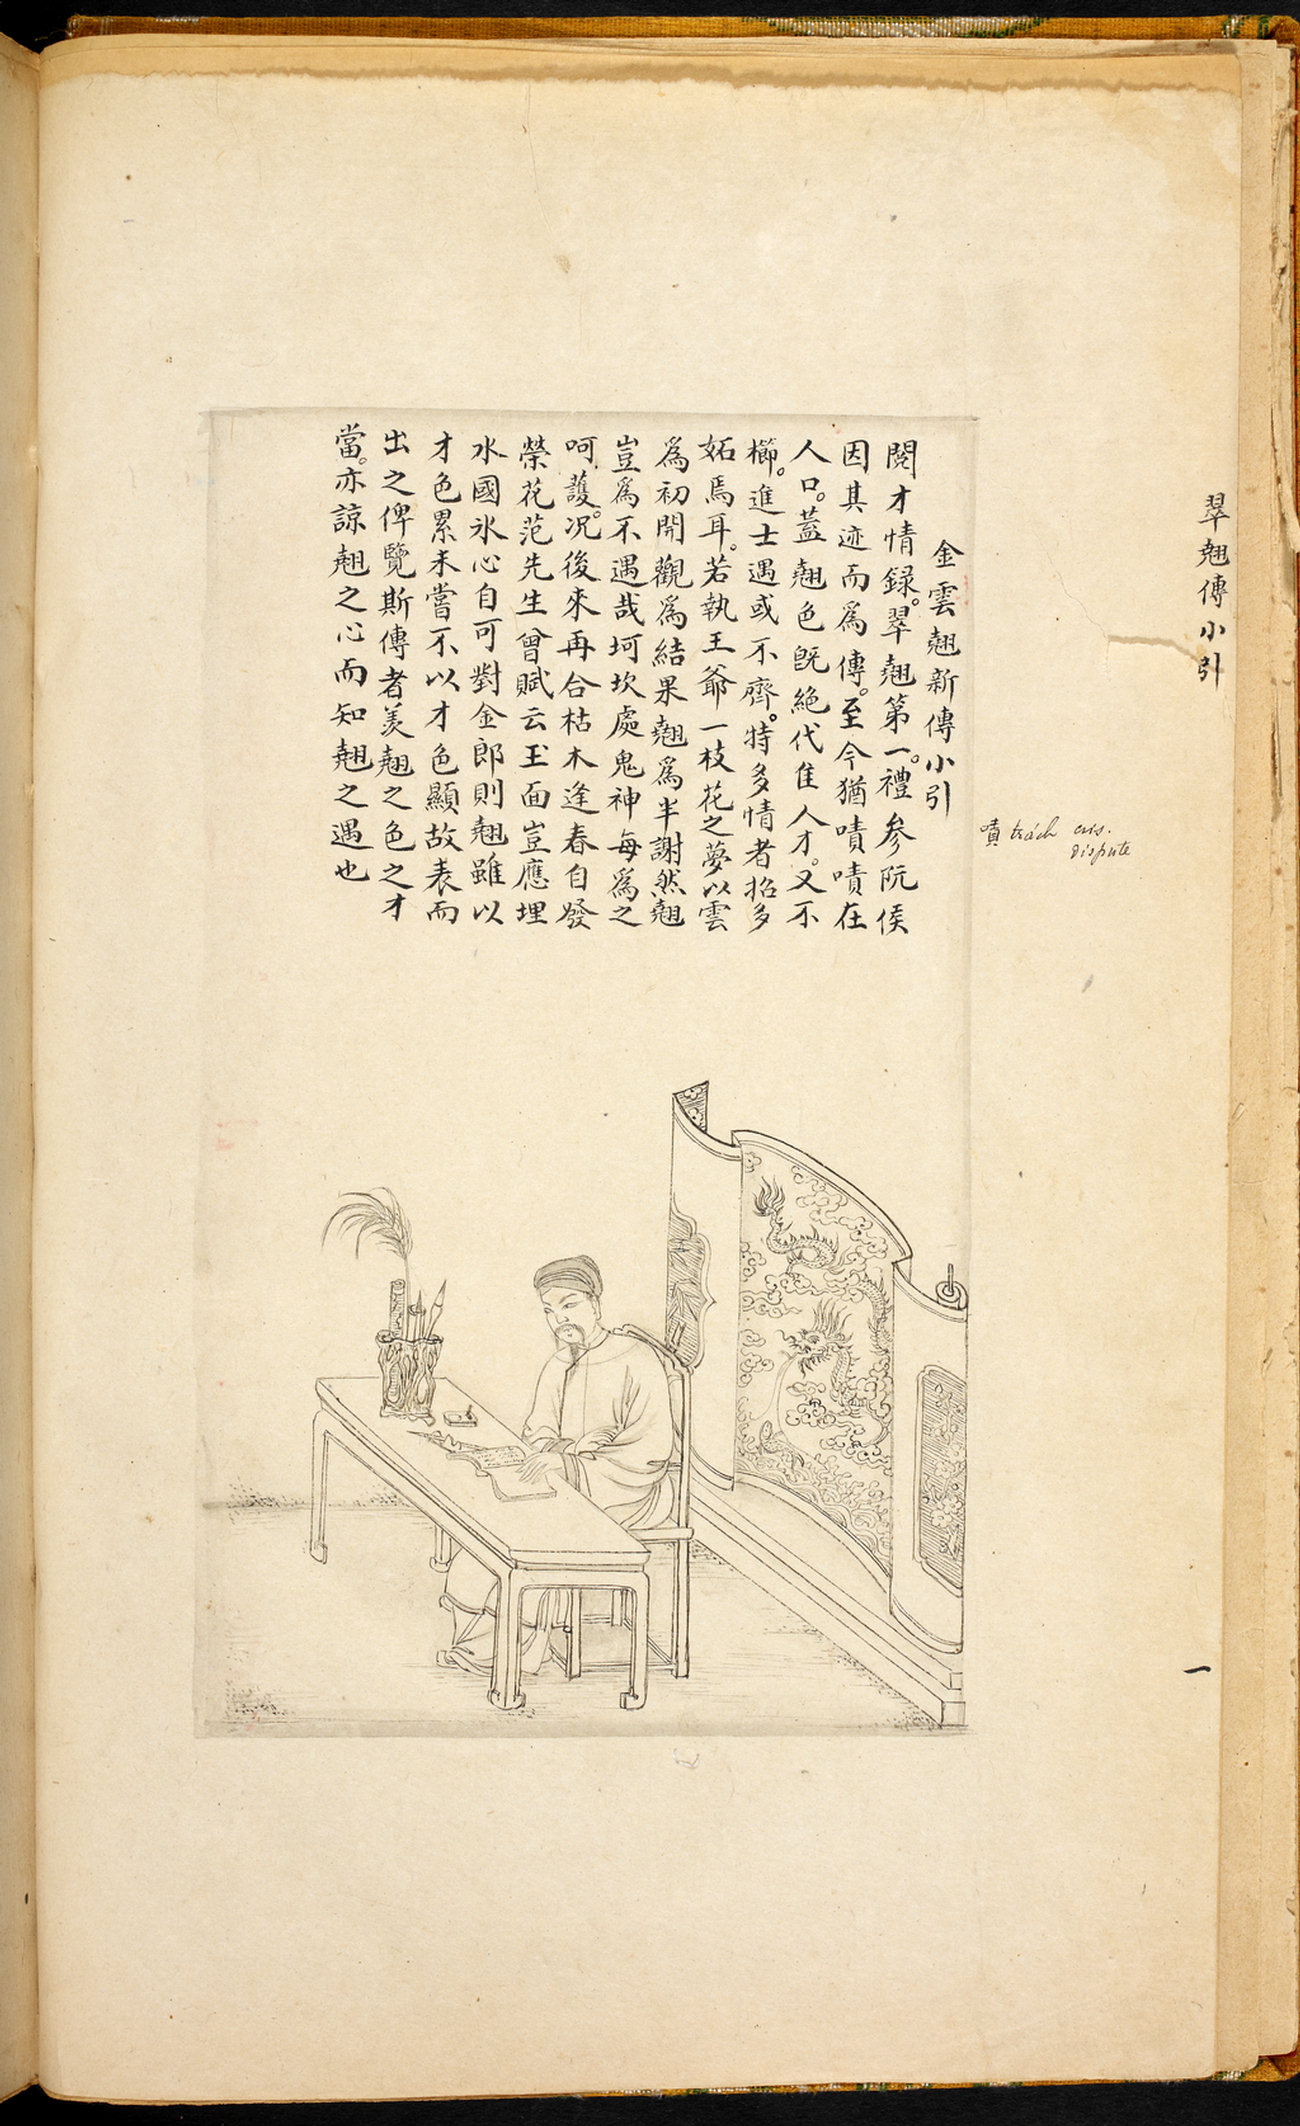 翠翹傳小引
金雲翹新傳小引
閱才情録。翠翹第一。禮參阮侯
因其迹而爲傳。至今猶嘖嘖在
人口。蓋翹色既絶代佳人才。又不
櫛。進士遇或不齊。特多情者招多
妬焉耳。若執王爺一枝花之夢以雲
爲初開觀爲結果翹爲半謝然翹
豈爲不遇哉坷坎處鬼神每爲之
呵護。况後來再合枯木逢春自發
榮花范先生曾賦云玉面豈應埋
水國氷心自可對金郎則翹雖以
才色累未嘗不以才色顯故表而
出之俾覽斯傳者羨翹之色之才
當。亦諒翹之心而知翹之遇也
嘖 trách cris.
dispute
一